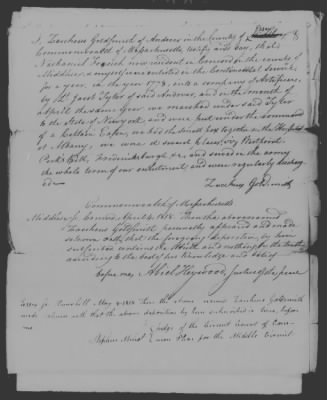 I, Zacheus Goldsmith of Andover in the County of Essex &
Commonwealth of Massachusetts, testify and say, that
Nathaniel French now resident in Concord in the county of
Middlesex, & myself were enlisted in the Continental Service
for a year, in the year 1778, in a company of Artificers,
by Jacob Tyler of said Andover, and in the month of
April the same year we marched under said Tyler
to the State of New york, and were put under the command
of a Certain Eaton, we had the small pox together at the Hospital
at Albany, we were at
Fredericksburgh &c, and served in the army
the whole term of our enlistment, and were regularly discharg
ed
Zacheus Goldsmith
Commonwealth of Massachusetts
Middlesex ss. Concord, April 4, 1818. Then the above named
Zacheus Goldsmith personally appeared and made
solemn oath, that the foregoing deposition, by him
subscribed contains the truth and nothing but the truth
according to the best of his knowledge and belief
before me, Abiel Heywood, Justice of the peace
May 1818 then the above named Zacheus Goldsmith
made solemn oath that the above deposition by him subscribed is true, before
me
Judge of the Circuit Court of Com-
mon Pleas for the Middle Circuit